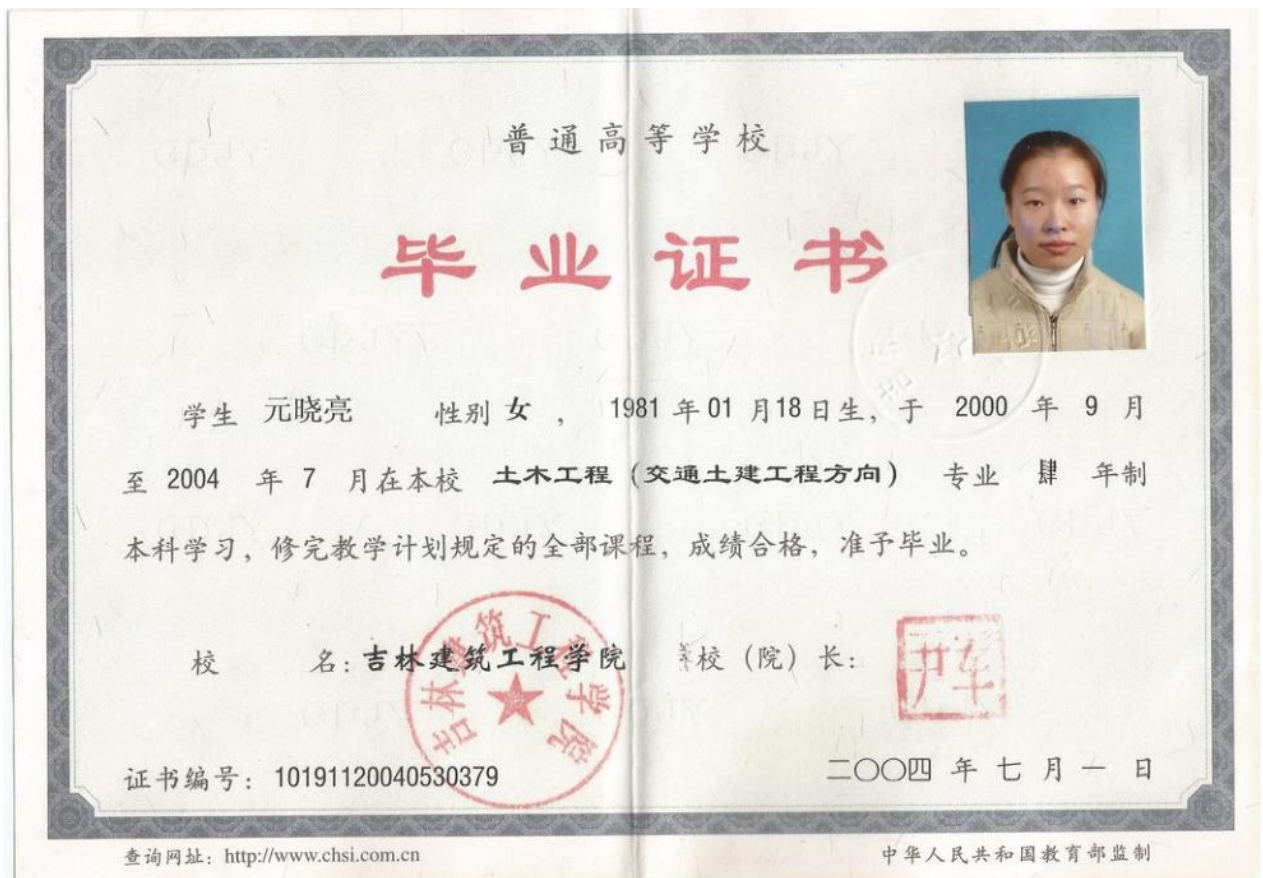 普通高等学校
毕业证书
学生 元晓亮 性别 女 , 1981 年 01 月 18 日生, 于 2000 年 9 月
至 2004 年 7 月在本校 土木工程（交通土建工程方向） 专业 肆 年制
本科学习, 修完教学计划规定的全部课程, 成绩合格, 准予毕业。
校 名: 吉林建筑工程学院 校（院）长:
吉林建筑工程学院
证书编号: 101911200405303​79
二〇〇四 年 七 月 一 日
查询网址: http://www.chsi.com.cn
中华人民共和国教育部监制